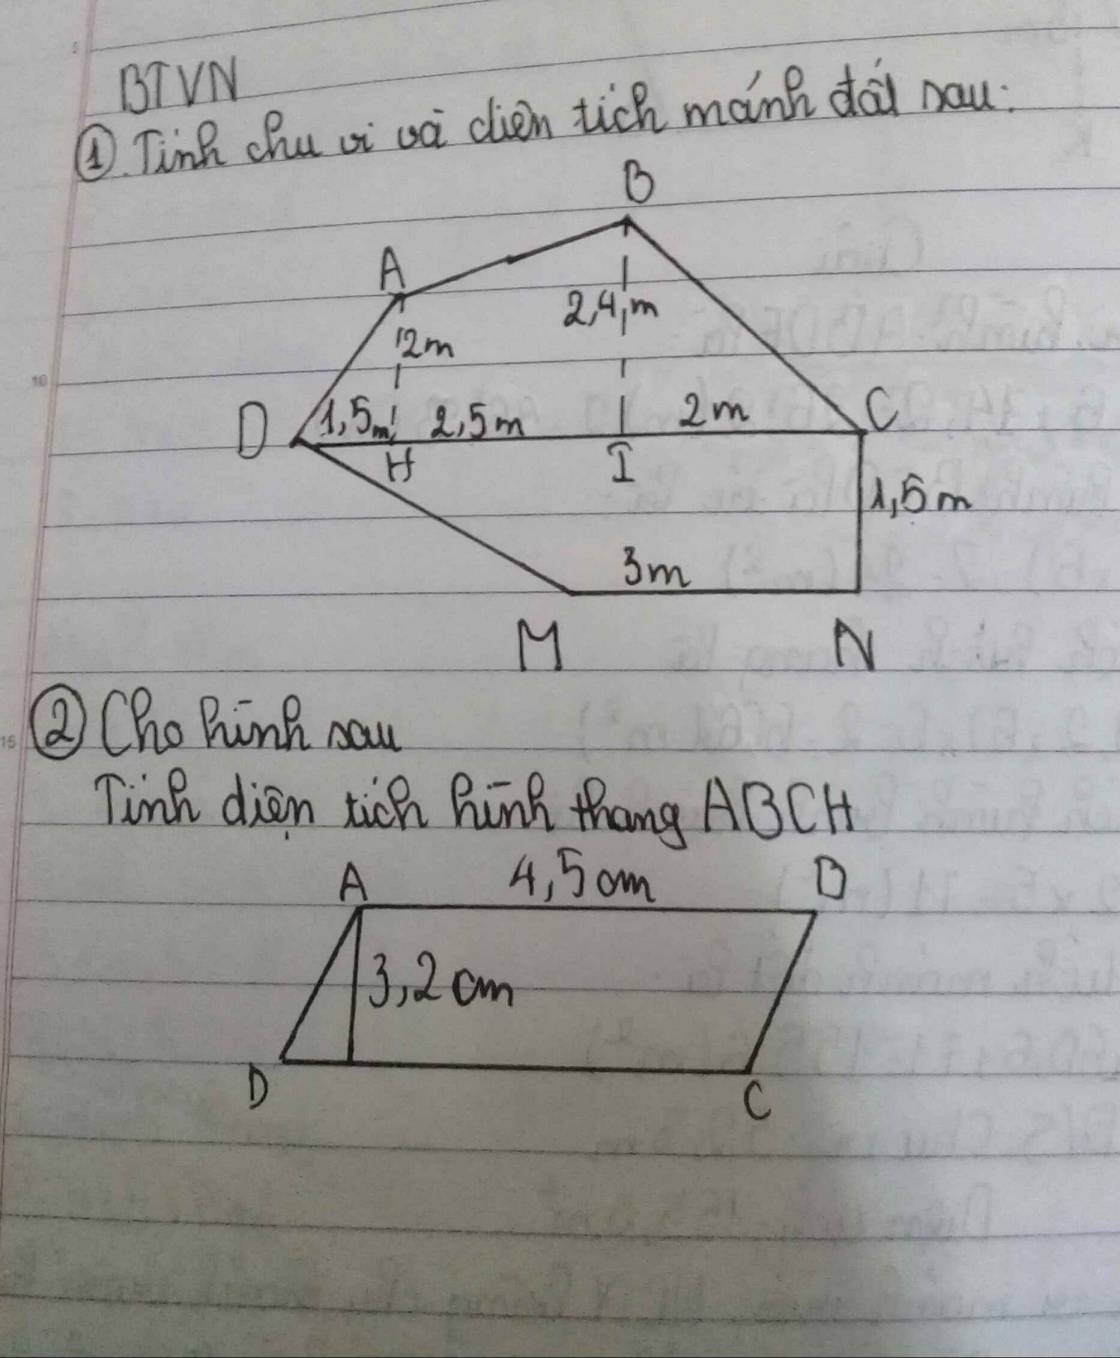 BTVN
① Tính chu vi và diện tích mảnh đất sau:
B
A
2,4 m
2m
D 1,5m 2,5m 2m C
H I
1,5m
3m
M N
② Cho hình sau
Tính diện tích hình thang ABCH
A 4,5cm B
3,2cm
D C
5
10
15